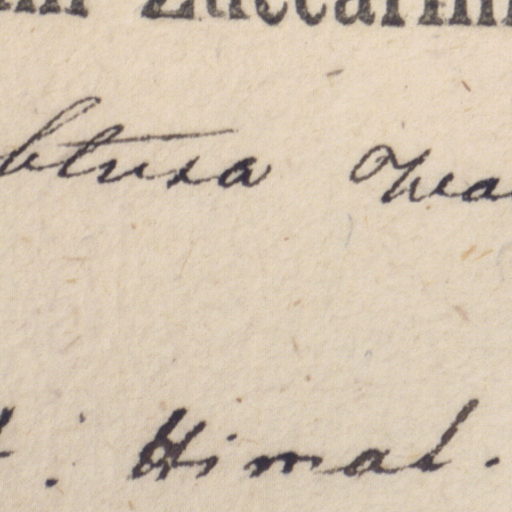 Zuccarini
btusa Wa
: Himal.